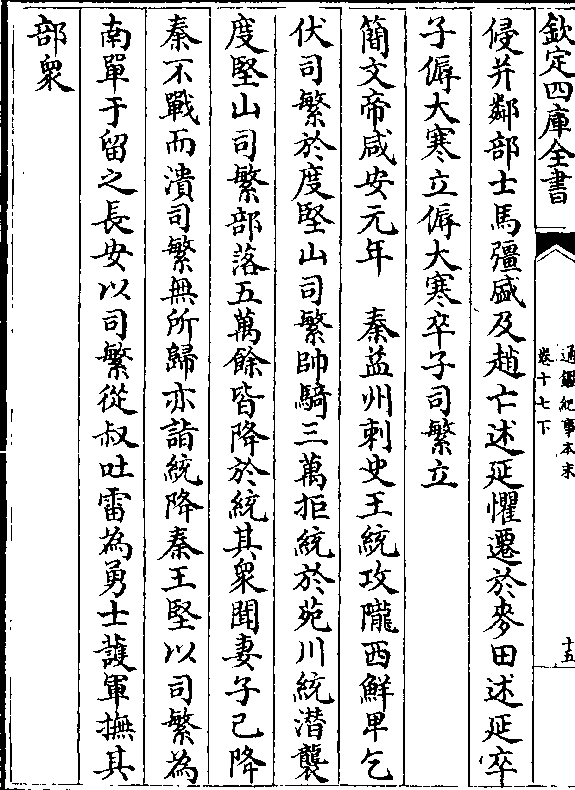 欽定四庫全書
通鑑紀事本末
卷十七下
十五
侵并鄰部士馬彊盛及趙亡述延懼遷於麥田述延卒
子傉大寒立傉大寒卒子司繁立
簡文帝咸安元年 秦益州刺史王統攻隴西鮮卑乞
伏司繁於度堅山司繁帥騎三萬拒統於苑川統潛襲
度堅山司繁部落五萬餘皆降於統其衆聞妻子已降
秦不戰而潰司繁無所歸亦詣統降秦王堅以司繁為
南單于留之長安以司繁從叔吐雷為勇士護軍撫其
部衆